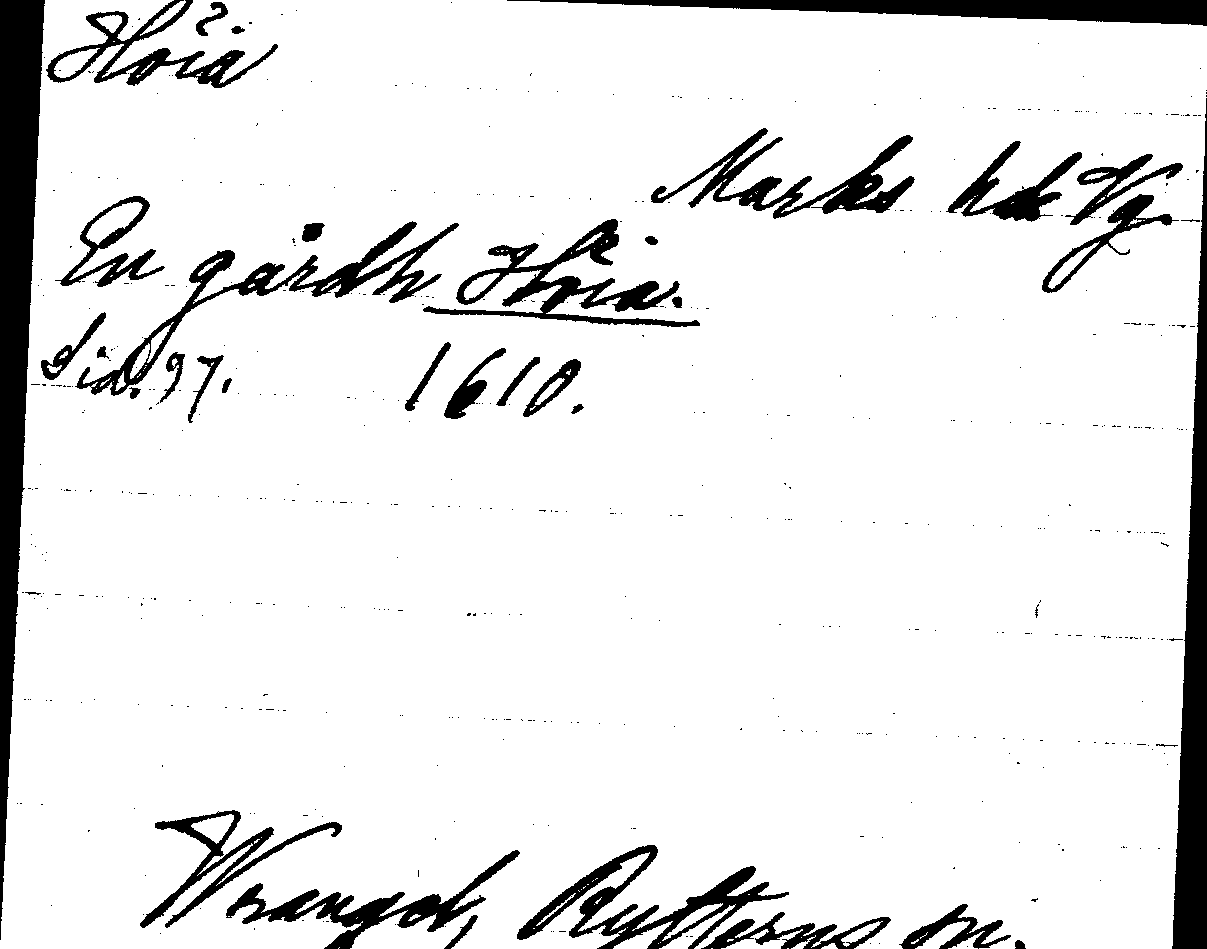 Höia
Marks hd Vg.
En gårdh Höia.
Sid. 97. 1610.
Wrangel, Rytterns sn.